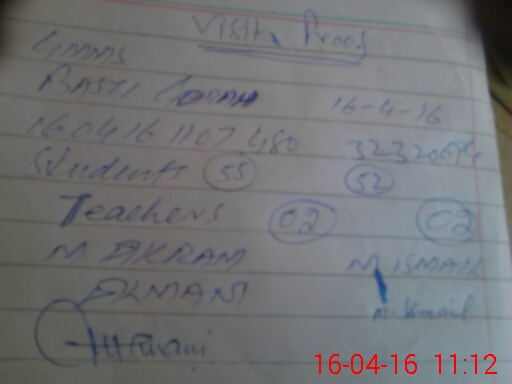 Visit Proof
GMMS
BASTI 16-4-16
160416 1107 480 32320694
Students 55 52
Teachers 02 02
M AKRAM M ISMAIL
M. Ismail
16-04-16 11:12